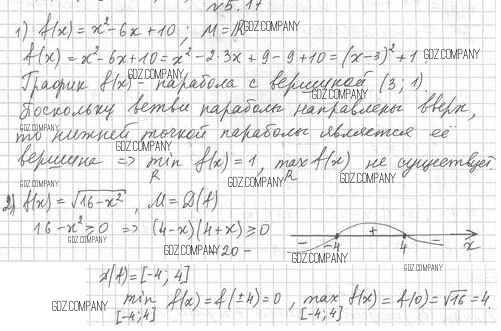 №5.17
1) f(x) = x² - 6x + 10 ; M = ℝ
GDZ.COMPANY
f(x) = x² - 6x + 10 = x² - 2·3x + 9 - 9 + 10 = (x-3)² + 1
GDZ.COMPANY
GDZ.COMPANY
График f(x) - парабола с вершиной (3; 1)
GDZ.COMPANY
Поскольку ветви параболы направлены вверх,
GDZ.COMPANY
то нижней точкой параболы является её
GDZ.COMPANY
вершина => min f(x) = 1, max f(x) не существует.
ℝ ℝ
GDZ.COMPANY GDZ.COMPANY GDZ.COMPANY
2) f(x) = √16 - x² , M = D(f)
16 - x² ≥ 0 => (4-x)(4+x) ≥ 0
- -4 + 4 - x
GDZ.COMPANY GDZ.COMPANY - 20 - GDZ.COMPANY
GDZ.COMPANY
D(f) = [-4; 4]
GDZ.COMPANY min f(x) = f(±4) = 0 , max f(x) = f(0) = √16 = 4.
[-4;4] [-4;4]